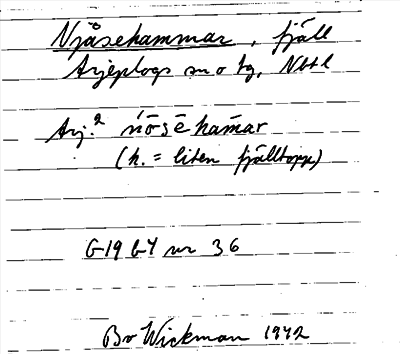 Njåsehammar, fjäll
Arjeplogs sn o tg, Nbtl
Arj.² ńō̱sēham̄ar
(h. = liten fjälltopp)
G19 b4 nr 36
Bo Wickman 1942